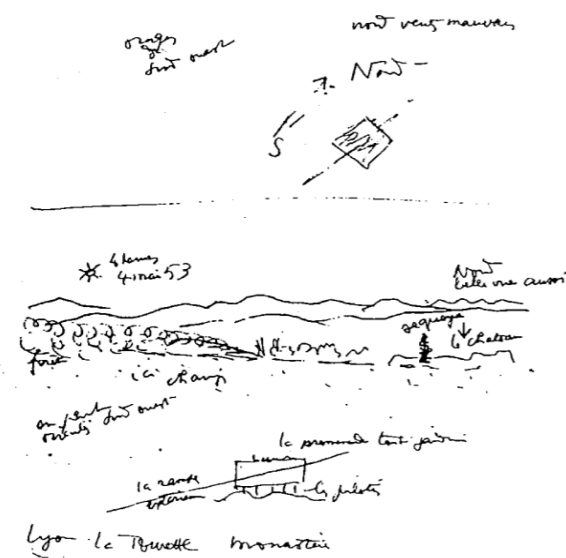 orages
sud ouest
nord vents mauvais
Nord
S
4 mai 53
Nord
belle vue aussi
sequoya
le chateau
foret
ici champ
en pente
orientés sud ouest
la promenade toit jardin
la rampe
extérieure
les pilotis
Lyon la Tourette monastère